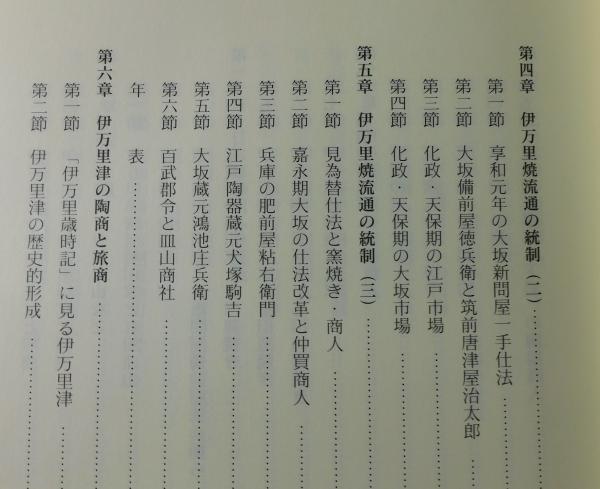 第四章　伊万里焼流通の統制（二）…………………
第一節　享和元年の大坂新問屋一手仕法…………
第二節　大坂備前屋徳兵衛と筑前唐津屋治太郎
第三節　化政・天保期の江戸市場…………………
第四節　化政・天保期の大坂市場…………………
第五章　伊万里焼流通の統制（三）…………………
第一節　見為替仕法と窯焼き・商人………………
第二節　嘉永期大坂の仕法改革と仲買商人………
第三節　兵庫の肥前屋粘右衛門……………………
第四節　江戸陶器蔵元犬塚駒吉……………………
第五節　大坂蔵元鴻池庄兵衛………………………
第六節　百武郡令と皿山商社………………………
年　表…………………………………………
第六章　伊万里津の陶商と旅商……………………
第一節　「伊万里歳時記」に見る伊万里津………
第二節　伊万里津の歴史的形成……………………